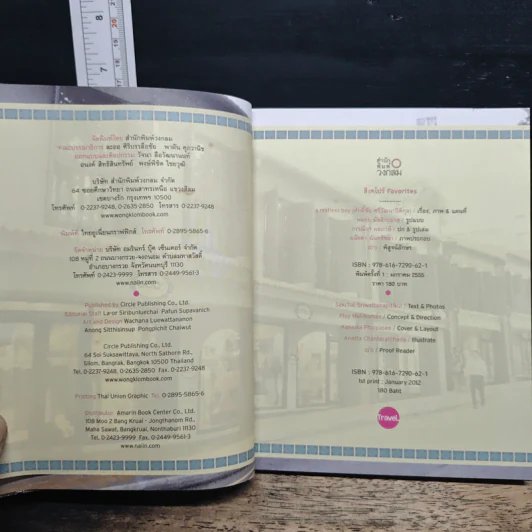 จัดพิมพ์โดย สำนักพิมพ์วงกลม
กองบรรณาธิการ ละออ ศิริบรรลือชัย พาฝัน ศุภวานิช
ออกแบบและศิลปกรรม วัจนา ลือวัฒนานนท์
อนงค์ สิทธิสินทรัพย์ พงษ์พิชิต ไชยวุฒิ
บริษัท สำนักพิมพ์วงกลม จำกัด
64 ซอยศึกษาวิทยา ถนนสาทรเหนือ แขวงสีลม
เขตบางรัก กรุงเทพฯ 10500
โทรศัพท์ 0-2237-9248, 0-2635-2850 โทรสาร 0-2237-9248
www.wongklombook.com
พิมพ์ที่ ไทยยูเนี่ยนกราฟฟิกส์ โทรศัพท์ 0-2895-5865-6
จัดจำหน่าย บริษัท อมรินทร์ บุ๊ค เซ็นเตอร์ จำกัด
108 หมู่ที่ 2 ถนนบางกรวย-จงถนอม ตำบลมหาสวัสดิ์
อำเภอบางกรวย จังหวัดนนทบุรี 11130
โทรศัพท์ 0-2423-9999 โทรสาร 0-2449-9561-3
www.naiin.com
Published by Circle Publishing Co., Ltd.
Editorial Staff La-or Siribunluechai Pafun Supavanich
Art and Design Wachana Luewattananon
Anong Sitthisinsup Pongpichit Chaiwut
Circle Publishing Co., Ltd.
64 Soi Suksawittaya, North Sathorn Rd.,
Silom, Bangrak, Bangkok 10500 Thailand
Tel. 0-2237-9248, 0-2635-2850 Fax. 0-2237-9248
www.wongklombook.com
Printing Thai Union Graphic Tel. 0-2895-5865-6
Distributor Amarin Book Center Co., Ltd.
108 Moo 2 Bang Kruai - Jongthanom Rd.,
Maha Sawat, Bangkruai, Nonthaburi 11130
Tel. 0-2423-9999 Fax. 0-2449-9561-3
www.naiin.com
สำนัก
พิมพ์
วงกลม
สิงคโปร์ Favorites
: เรื่อง, ภาพ & แผนที่
: รูปแบบ
: ปก & รูปเล่ม
: ภาพประกอบ
: พิสูจน์อักษร
ISBN : 978-616-7290-62-1
พิมพ์ครั้งที่ 1 : มกราคม 2555
ราคา 180 บาท
: Text & Photos
: Concept & Direction
: Cover & Layout
: Illustrate
: Proof Reader
ISBN : 978-616-7290-62-1
1st print : January 2012
180 Baht
Travel